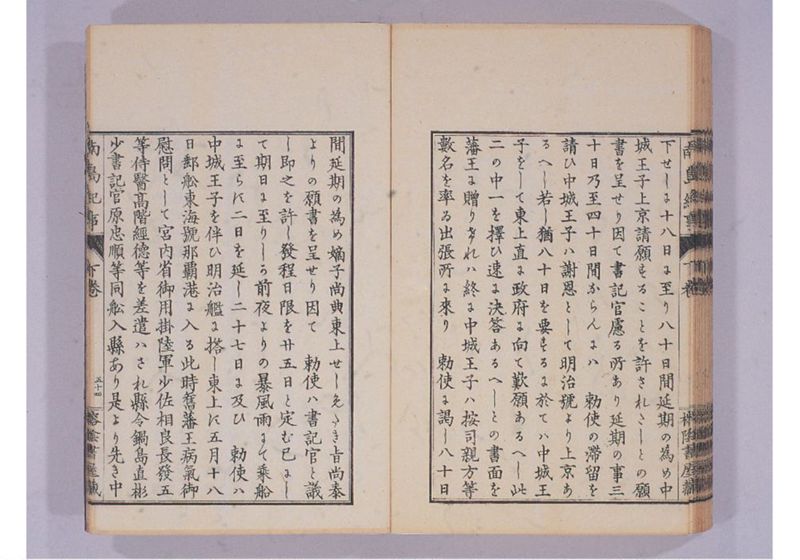 下せしに十八日に至り八十日間延期の為め中
城王子上京請願することを許されさしとの願
書を呈せり因て書記官慮る所あり延期の事三
十日乃至四十日間からんには 勅使の滞留を
請ひ中城王子ハ謝恩として明治號より上京あ
るへし若し猶八十日を要するに於てハ中城王
子をして東上直に政府に向て歎願あるへし此
二の中一を擇ひ速に決答あるへしとの書面を
藩王に贈りけれハ終に中城王子ハ按司親方等
數名を率ゐ出張所に來り 勅使に謁し八十日
間延期の為め嫡子尚典東上せしえたき旨尚泰
よりの願書を呈せり因て 勅使ハ書記官と議
し即之を許し發程日限を廿五日と定む已にし
て期日に至りしる前夜よりの暴風雨にて乘船
に至らに二日を延し二十七日に及ひ 勅使ハ
中城王子を伴ひ明治艦に搭し東上に五月十八
日郵舩東海號那覇港に入る此時舊藩王病氣御
慰問として宮内省御用掛陸軍少佐相良長發五
等侍醫高階經德等を差遣ハされ縣令鍋島直彬
少書記官原忠順等同舩入縣あり是より先き中
南島紀事
下卷
五十四